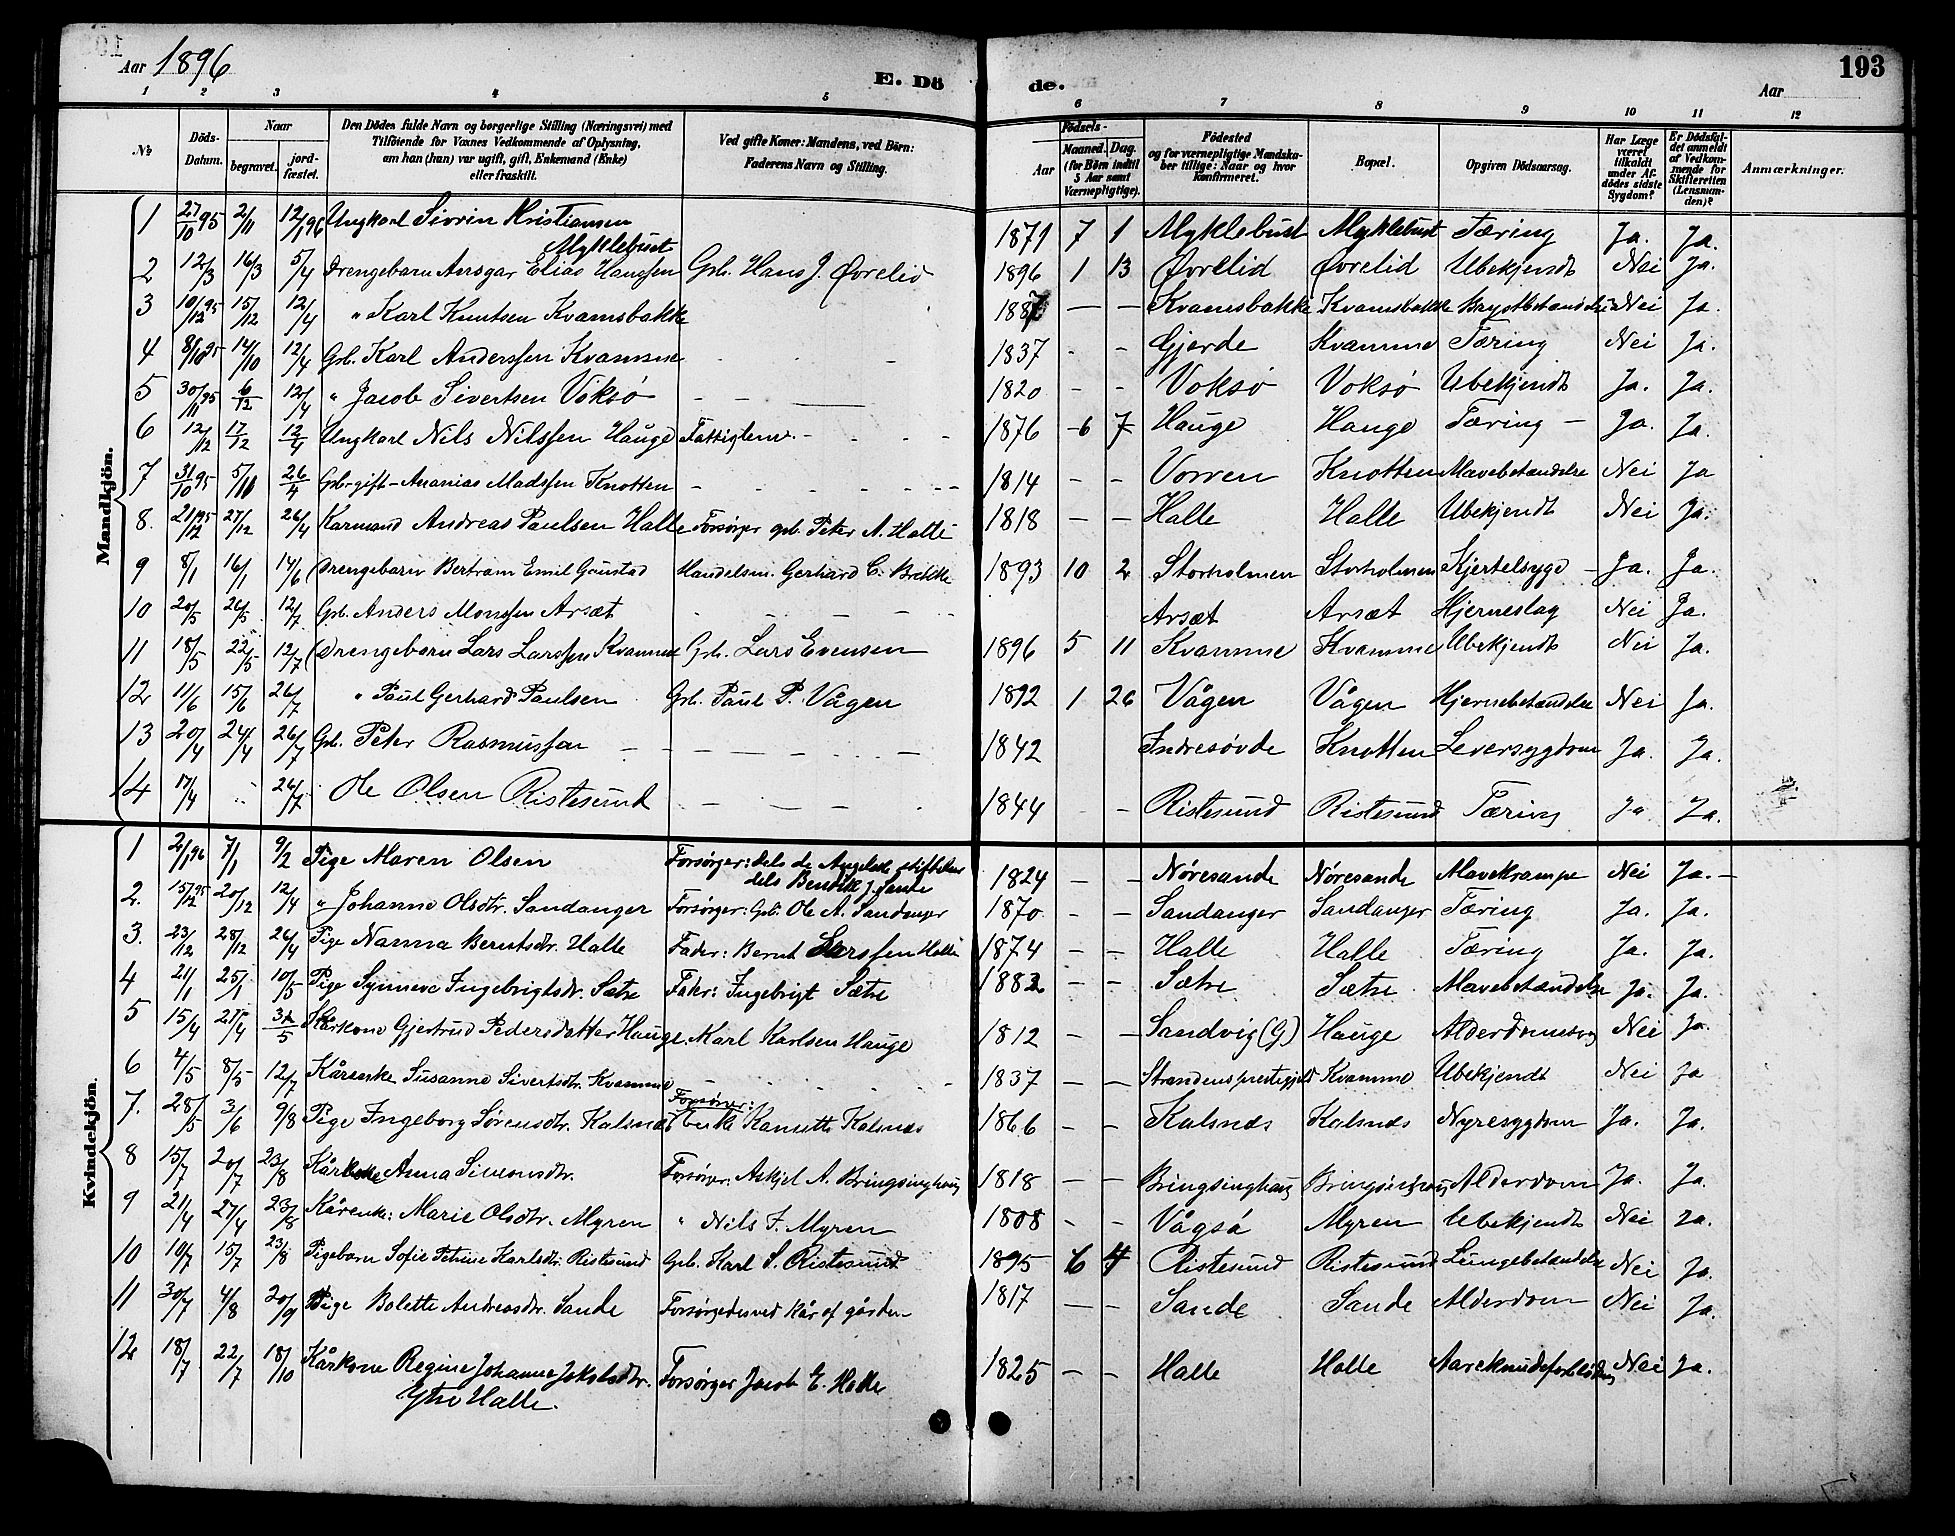 Aar 1896
E. Dö
de.
Aar
193
1 2 3 4 5 6 7 8 9 10 11 12
No
Döds-Datum.
Naar
begravet.
jord-fæstet.
Den Dödes fulde Navn og borgerlige Stilling (Næringsvei) med Tilföiende for Voxnes Vedkommende af Oplysning, om han (hun) var ugift, gift, Enkemand (Enke) eller fraskilt.
Ved gifte Koner: Mandens, ved Börn: Faderens Navn og Stilling.
Födsels-
Aar
Maaned. Dag.
(for Börn indtil 5 Aar samt Værnepligtige).
Födested og for værnepligtige Mandska-ber tillige: Naar og hvor konfirmeret.
Bopæl.
Opgiven Dödsaarsag.
Har Læge været tilkaldt under Af-dödes sidste Sygdom?
Er Dödsfal-det anmeldt af Vedkom-mende for Skifteretten (Lensman-den)?
Anmærkninger.
Mandkjön.
1 27/10 95 2/11 12/1 96 Ungkarl Sivrin Kristiansen Myklebust 1871 7 1 Myklebust Myklebust Tæring Ja. Ja.
2 12/3 16/3 5/4 Drengebarn Ansgar Elias Hanssen Gbr. Hans J. Øvrelid 1896 1 13 Øvrelid Øvrelid Ubekjendt Nei Ja.
3 10/12 95 15/12 12/4 " Karl Knutsen Kvamsbakke 1887 — — Kvamsbakke Kvamsbakke Brystbetændelse Nei Ja.
4 8/10 95 14/10 12/4 Gbr. Karl Anderssen Kvamme 1837 - - Gjerde Kvamme Tæring Nei Ja.
5 30/11 95 6/12 12/4 " Jacob Sivertsen Voksø 1820 - - Voksø Voksø Ubekjendt Ja. Ja.
6 12/12 17/12 12/4 Ungkarl Nils Nilssen Hauge Fattiglem. 1876 6 7 Hauge Hauge Tæring Ja. Ja.
7 31/10 95 5/11 26/4 Gbr. gift Ananias Madssen Knotten 1814 - - Vorren Knotten Mavebetændelse Nei Ja
8. 21/12 95 27/12 26/4 Karmand Andreas Paulsen Halle Forsørger gbr. Peter A. Halle 1818 — — Halle Halle Ubekjendt Nei Ja.
9 8/1 16/1 14/6 Drengebarn Bertram Emil Gaustad Handelsm. Gerhard C. Brekke 1893 10 2 Storholmen Storholmen Kjertelsyge Ja. Ja.
10 20/5 26/5 12/7 Gbr. Anders Monssen Arsæt Arsæt Arsæt Hjerneslag Nei Ja.
11 18/5 22/5 12/7 Drengebarn Lars Larssen Kvamme Gbr. Lars Evensen 1896 5 11 Kvamme Kvamme Ubekjendt Nei Ja.
12 11/6 15/6 26/7 " Paul Gerhard Paulsen Grb. Paul P. Vågen 1892 1 26 Vågen Vågen Hjernebetændelse Nei Ja.
13 20/4 24/4 26/7 Gbr. Peter Rasmussen 1842 Indresøvde Knotten Leversygdom Ja. Ja.
14 17/4 " 26/7 Ole Olsen Ristesund 1844 - Ristesund Ristesund Tæring Ja Ja.
Kvindekjön.
1 2/1 96 7/1 9/2 Pige Maren Olsen Forsørger: dels dels Bendik J. Sande 1824 — — Nøresande Nøresande Mavekrampe Nei Ja.
2. 15/12 95 20/12 12/4 " Johanne Olsdtr. Sandanger Forsørger: Gbr. Ole A. Sandanger 1870 - - Sandanger Sandanger Tæring Ja. Ja.
3. 23/12 28/12 26/4 Pige Nanna Berntsdtr. Halle Fader: Bernt Larssen Halle 1874 - - Halle Halle Tæring Ja. Ja.
4 21/1 25/1 10/5 Pige Synneve Ingebrigtsdtr. Sætre Fader: Ingebrigt Sætre 1882 - - Sætre Sætre Mavebetændelse Ja. Ja.
5 15/4 21/4 31/5 Kårkone Gjertrud Pedersdatter Hauge. Karl Karlsen Hauge 1812 — — Sandvig (G) Hauge Nei Ja.
6 4/5 8/5 12/7 Kårenke Susanne Sivertsdtr. Kvamme 1837 — — Strandens prestegjeld Kvamme Ubekjendt Nei Ja
7. 28/5 3/6 9/8 Pige Ingeborg Sørensdtr. Kalsnæs Forsørger: Enke Kalsnæs 1866 - - Kalsnæs Kalsnæs Nyresygdom Ja. Ja.
8 15/7 20/7 23/8 Kårenke Anna Simonsdtr. Forsørger: Askjel A. Bringsinghaug 1818 — — Bringsinghaug Bringsinghaug Alderdom Ja. Ja.
9 21/4 27/4 23/8 Kårenke: Marie Olsdtr. Myren " Nils J. Myren 1808 - - Vågsø Myren Ubekjendt Nei Ja.
10 10/7 15/7 23/8 Pigebarn Sofie Petrine Karlsdtr. Ristesund Gbr. Karl S. Ristesund 1895 6 4 Ristesund Ristesund Lungebetændelse Nei Ja.
11 30/7 4/8 20/9 Pige Bolette Andreasdtr. Sande Forsørgedes ved kår af gården 1817 — — Sande Sande Alderdom Nei Ja.
12 18/7 22/7 18/10 Kårkone Regine Johanne Jakobsdtr. Ytre Halle. Forsørger Jacob E. Halle 1825 - - Halle Halle Nei Ja.